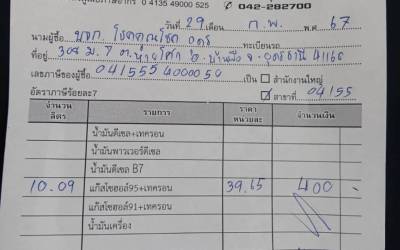 0 4135 49000 525
042-282700
วันที่ 29 เดือน ก.พ. พ.ศ 67
นามผู้ซื้อ บจก. โชคคูณโชค อุดร ทะเบียนรถ
ที่อยู่ 308 ม.7 ต. บ้านผือ จ.อุดรธานี 41160
เลขภาษีของผู้ซื้อ 0415554000050 เป็น สำนักงานใหญ่
อัตราภาษีร้อยละ7 สาขาที่ 04155
จำนวน ลิตร รายการ ราคา หน่วยละ จำนวนเงิน
น้ำมันดีเซล+เทครอน
น้ำมันพาวเวอร์ดีเซล
น้ำมันดีเซล B7
10.09 แก๊สโซฮอล์95+เทครอน 39.65 400
แก๊สโซฮอล์91+เทครอน
น้ำมันเครื่อง